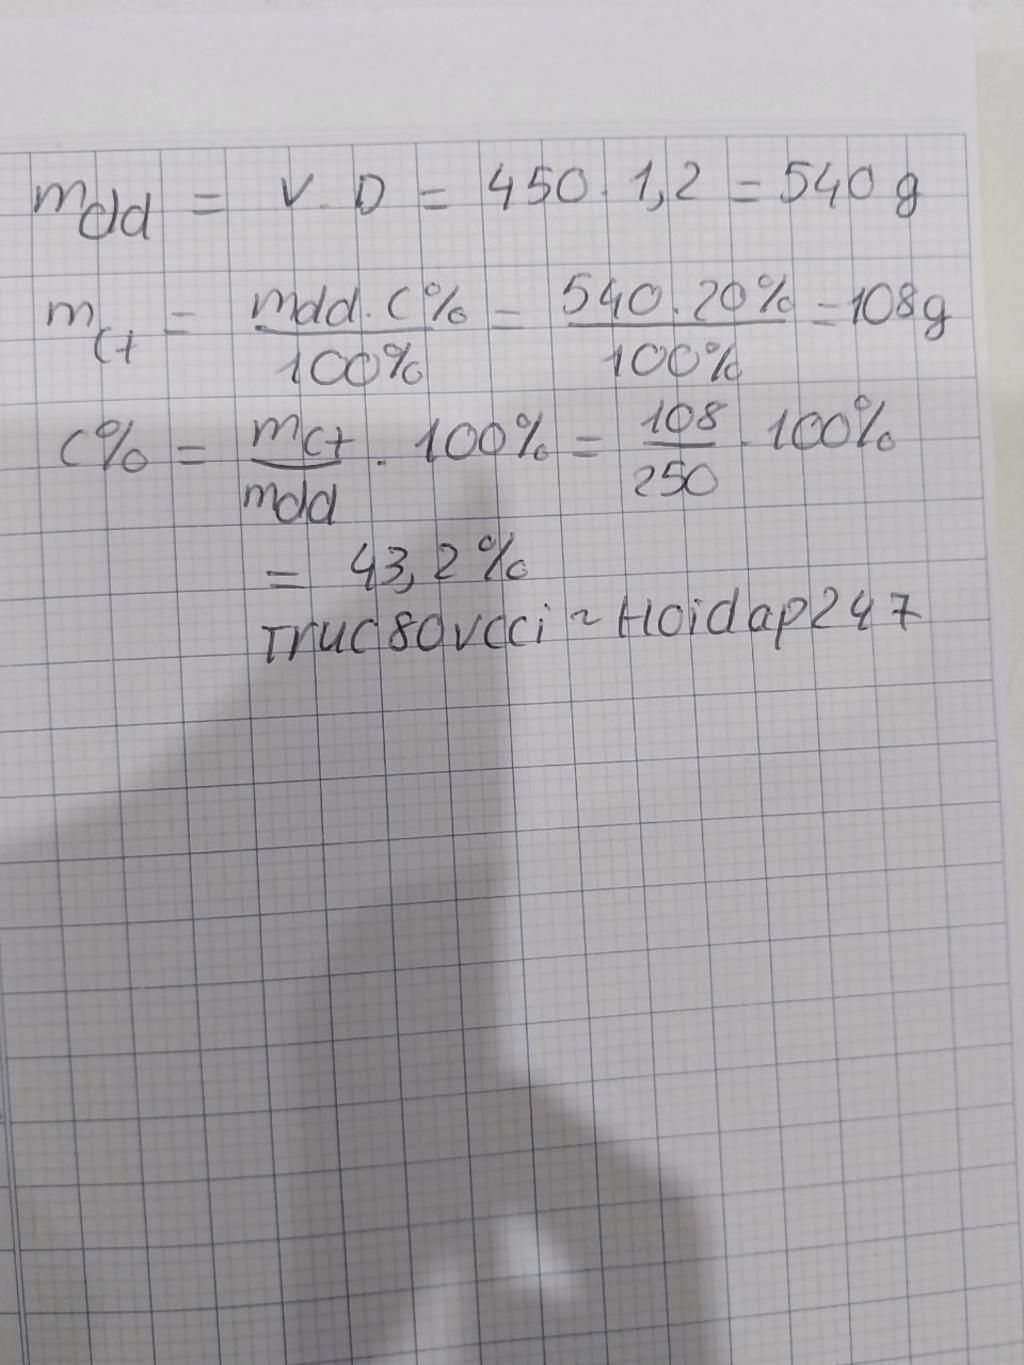 mdd = V.D = 450.1,2 = 540 g
mct = mdd.C%/100% = 540.20%/100% = 108g
C% = mct/mdd . 100% = 108/250 . 100%
= 43,2%
Truc80vcci ~ Hoidap247